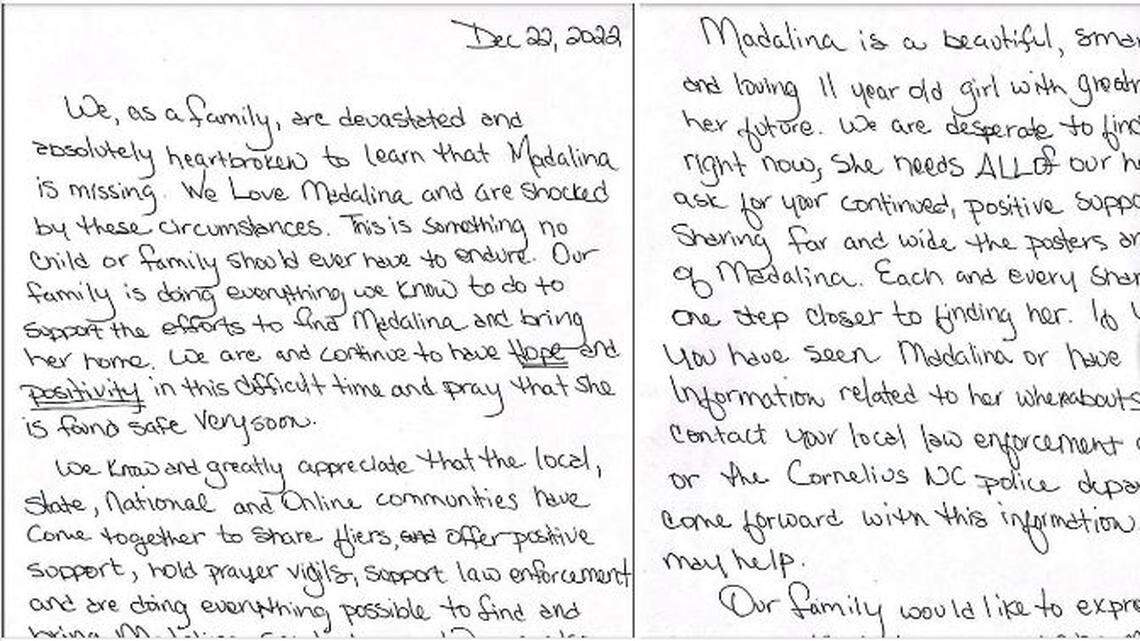 Dec 22, 2022
We, as a family, are devastated and
absolutely heartbroken to learn that Madalina
is missing. We Love Madalina and are shocked
by these circumstances. This is something no
child or family should ever have to endure. Our
family is doing everything we know to do to
support the efforts to find Madalina and bring
her home. We are and continue to have Hope and
positivity in this difficult time and pray that she
is found safe very soon.
We know and greatly appreciate that the local,
State, National and Online communities have
come together to share fliers, and offer positive
support, hold prayer vigils, support law enforcement
and are doing everything possible to find and
bring
Madalina is a beautiful,
and loving 11 year old girl with
her future. We are desperate to find
right now, She needs ALL of our
ask for your continued, positive
Sharing far and wide the posters
of Madalina. Each and every
one step closer to finding her.
you have seen Madalina or have
Information related to her whereabouts
contact your local law enforcement
or the Cornelius NC police
come forward with this information.
may help.
Our family would like to